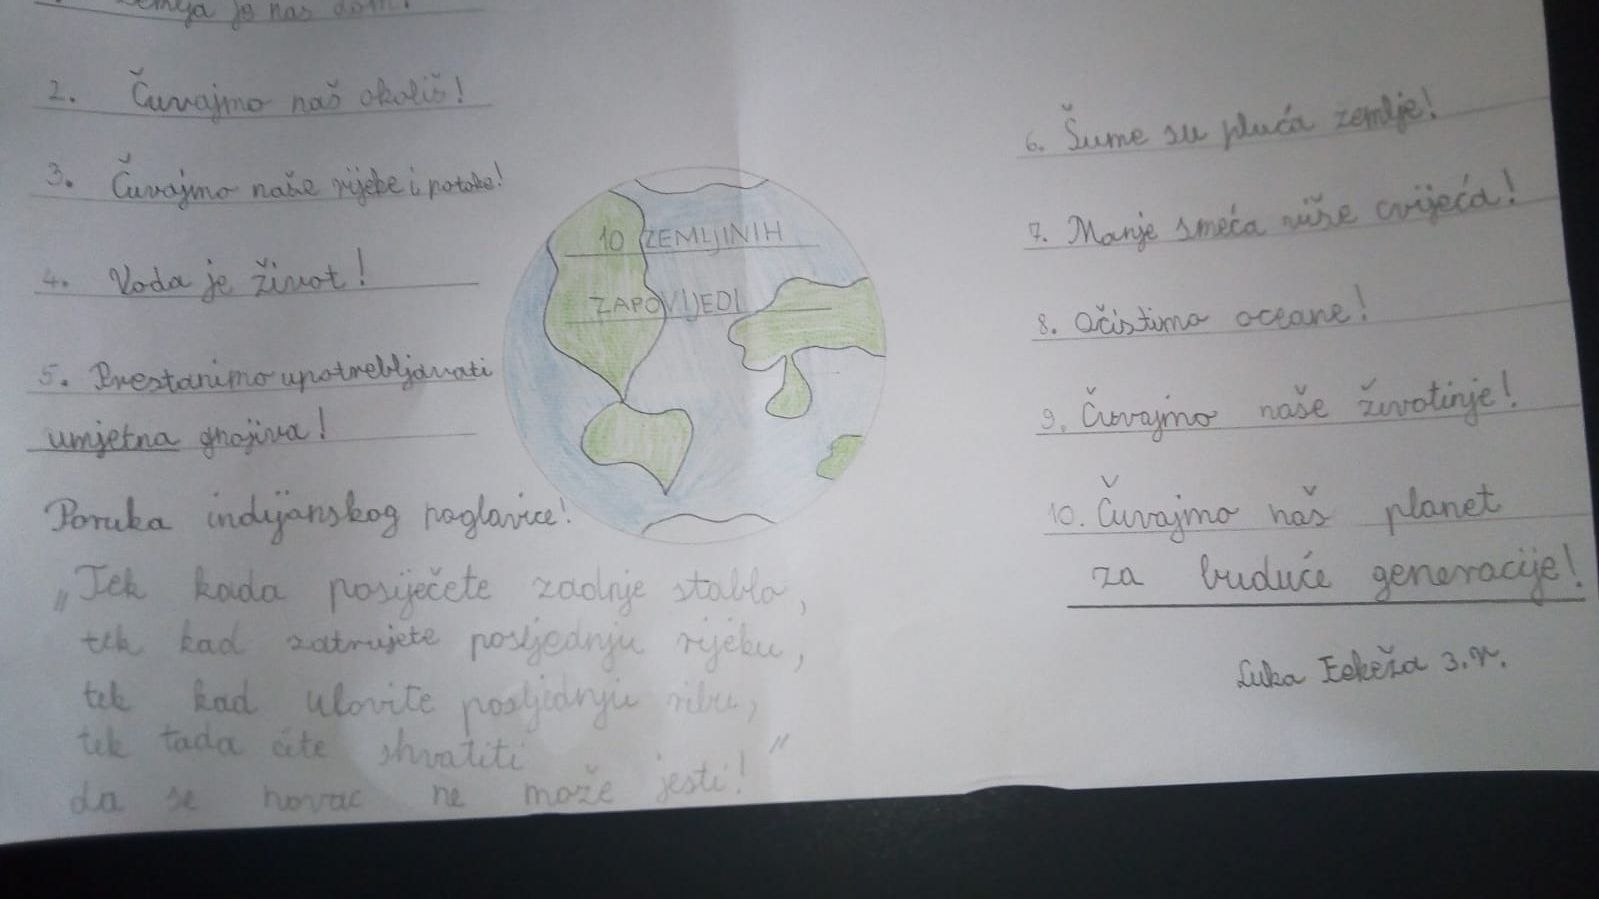 Zemlja je naš dom!
2. Čuvajmo naš okoliš!
3. Čuvajmo naše rijeke i potoke!
4. Voda je život!
5. Prestanimo upotrebljavati
umjetna gnojiva!
10 ZEMLJINIH
ZAPOVIJEDI
6. Šume su pluća zemlje!
7. Manje smeća više cvijeća!
8. Očistimo oceane!
9. Čuvajmo naše životinje!
10. Čuvajmo naš planet
za buduće generacije!
Luka 3.r.
Poruka indijanskog poglavice!
„Tek kada posiječete zadnje stablo,
tek kad zatrujete posljednju rijeku,
tek kad ulovite posljednju ribu,
tek tada ćete shvatiti
da se novac ne može jesti!"